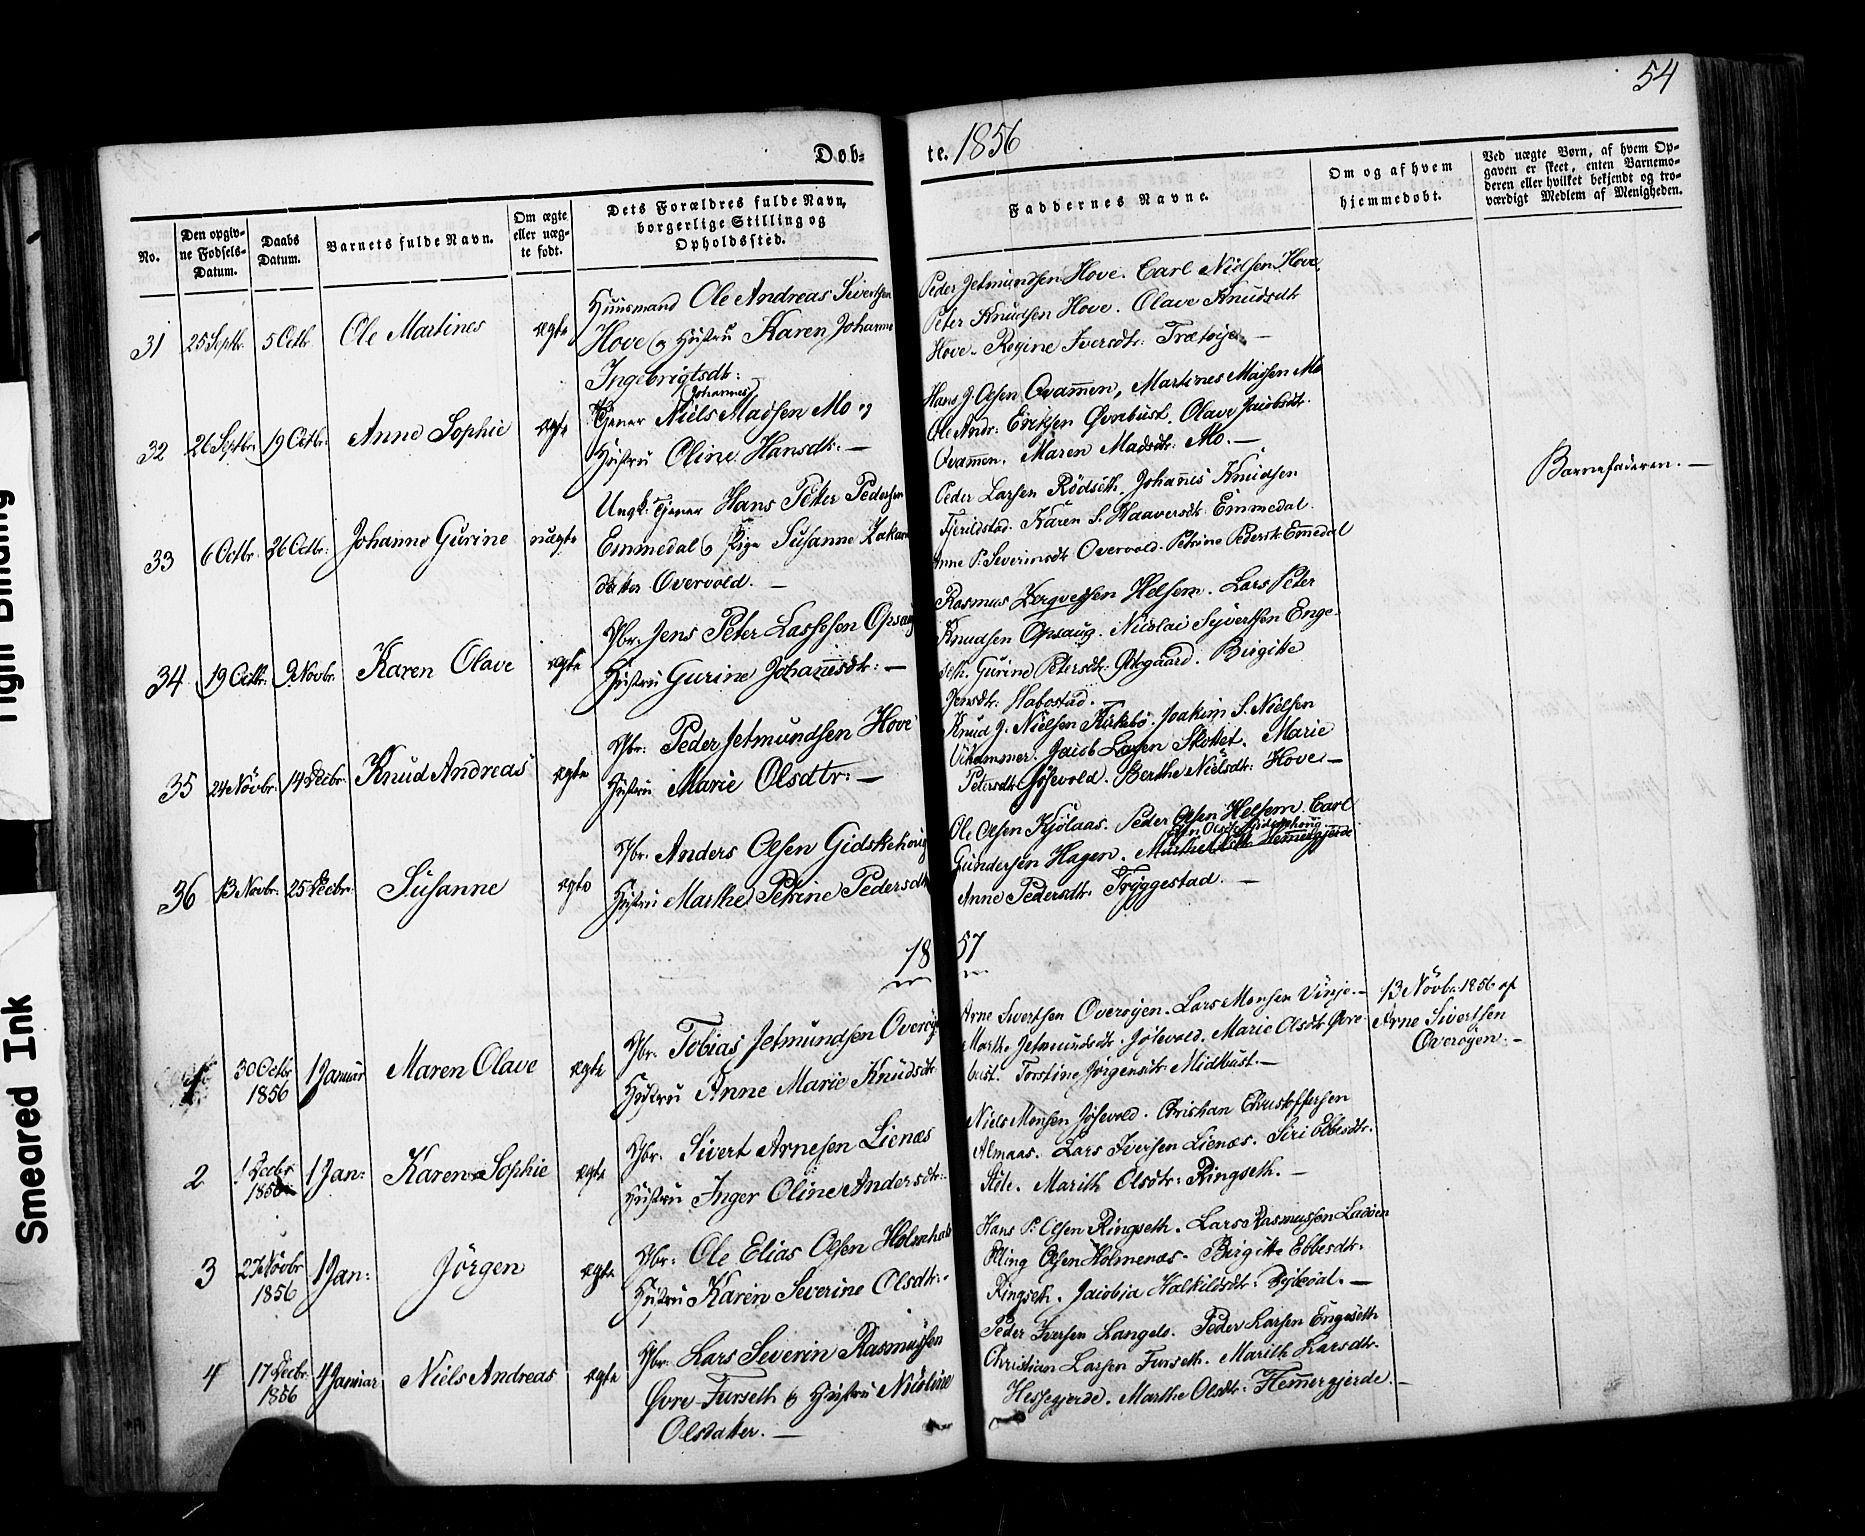 54
Døb-
te. 1856
No.
Den opgiv-
ne Fødsels-
Datum.
Daabs
Datum.
Barnets fulde Navn.
Om ægte
eller uæg-
te født.
Dets Forældres fulde Navn,
borgerlige Stilling og
Opholdssted.
Faddernes Navne.
Om og af hvem
hjemmedøbt.
Ved uægte Børn, af hvem Op-
gaven er skeet, enten Barnemo-
deren eller hvilket bekjendt og tro-
værdigt Medlem af Menigheden.
31 25 Septbr. 5 Octbr. Ole Martines ægte
Huusmand Ole Andreas Sivertsen
Hove og Hustru Karen Johanne
Ingebrigtsdtr: —
Peder Jetmundsen Hove. Carl Nielsen Hove,
Peter Knudsen Hove. Olave Knudsdtr
Hove. Regine Iversdtr: —
32 26 Septbr. 19 Octbr. Anne Sophie ægte
Johannes
Tjener Niels Madsen Mo og
Hustru Oline Hansdtr. —
Hans J. Olsen Ovammen, Martines Madsen Mo
Ole Andr: Eriksen Øvrebust. Olave Jacobsdtr.
Ovammen. Maren Madsdtr: Mo. —
33 6 Octbr. 26 Octbr. Johanne Gurine uægte
Ungk: Tjener Hans Peter Pedersen
Emmedal og Pige Susanne
datter Overvold. —
Peder Larsen Rødseth. Johannes Knudsen
Fjerildstad. Karen S. Haaversdtr Emmedal.
Anne P. Severinsdtr Overvold. Petrine Pedersdtr Emmedal
Barnefaderen. —
34 19 Octbr. 9 Novbr. Karen Olave ægte
Gbr. Jens Peter Lassesen Opsaug
Hustru Gurine Johannisdtr: —
Rasmus Helsem. Lars Peter
Knudsen Opsaug. Nicolai Syvertsen Enge-
seth. Gurine Petersdtr: Ødegaard. Birgitte
Jensdtr: Habostad. —
35 24 Novbr. 14 Decbr. Knud Andreas ægte
Gbr: Peder Jetmundsen Hove
Hustru Marie Olsdtr: —
Knud J. Nielsen Joakim S. Nielsen
Vikhammer. Jacob Larsen Skottet. Marie
Petersdtr: Jøsevold. Berthe Nielsdtr: Hove. —
36 13 Novbr. 25 Decbr. Susanne ægte
Gbr. Anders Olsen Gidskehoug
Hustru Marthe Petrine Pedersdtr
Ole Olsen Kjølaas. Peder Olsen Helsem. Carl
Gundersen Hagen.
Anne Pedersdtr Tryggestad. —
1857
1 30 Octbr 1 Januar Maren Olave ægte
1856
Gbr. Tobias Jetmundsen Overøyen
Hustru Anne Marie Knudsdtr
Arne Sivertsen Overøyen. Lars Monsen Vinje. —
Marthe Jetmundsdtr. Jøsevold. Marie Olsdtr Øvre-
bust. Torstine Jørgensdtr Midtbust. —
13 Novbr. 1856 af
Arne Sivertsen
Overøyen. —
2 1 Decbr 1 Jan: Karen Sophie ægte
1856
Gbr. Sivert Arnesen Lienæs
Hustru Inger Oline Andersdtr:
Niels Monsen Jøsevold. Christian Christoffersen
Almaas. Lars Iversen Lienæs. Siri Ebbesdtr.
Marith Olsdtr: Ringseth. —
3 27 Novbr 1 Jan: Jörgen ægte
1856
Gbr: Ole Elias Olsen
Hustru Karen Severine Olsdtr:
Hans P. Olsen Ringseth. Lars Rasmussen Ladøen
Elling Olsen Holmenæs. Birgitte Ebbesdtr.
Ringseth. Jacobia Halkildsdtr: —
4 17 Decbr. 4 Januar Niels Andreas ægte
1856
Gbr: Lars Severin Rasmussen
Øvre Furseth og Hustru Nicoline
Olsdatter. —
Peder Iversen Langelo. Peder Larsen Engeseth
Christian Larsen Furseth. Marith Larsdtr.
Hessegjerde. Marthe Olsdtr: Hemergjerde. —
Tight Binding
Smeared Ink